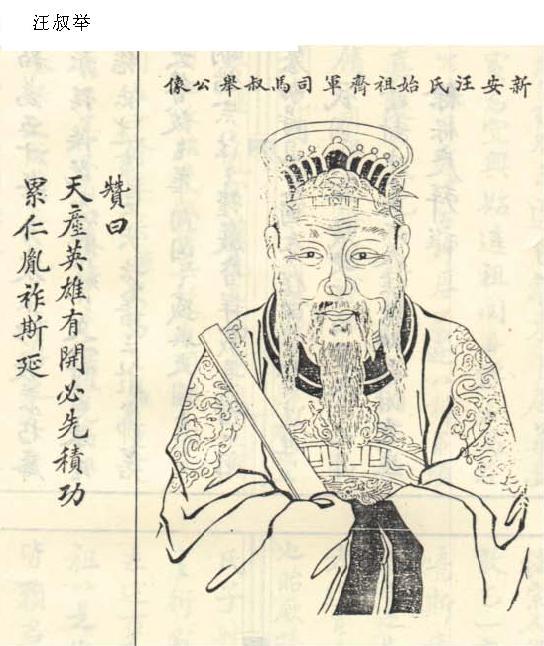 汪叔举
新安汪氏始祖齊軍司馬叔舉公像
贊曰
天產英雄有開必先積功
累仁胤祚斯延